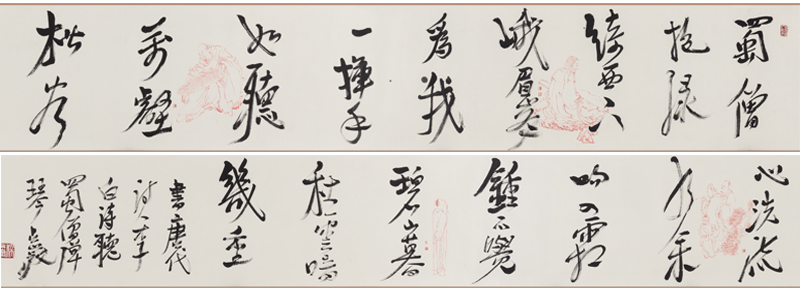 蜀僧
抱綠
綺西下
峨眉峰
爲我
一揮手
如聽
萬壑
松客
心洗流
水余
响入霜
鍾不覺
碧山暮
秋雲暗
幾重
書唐代
詩人李
白詩聽
蜀僧彈
琴